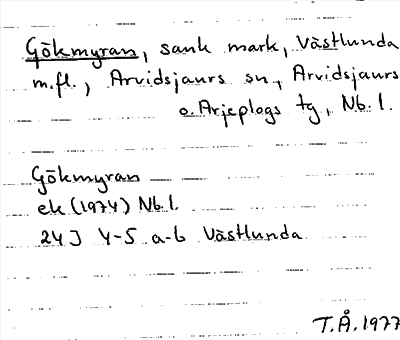 Gökmyran, sank mark, Västlunda
m.fl., Arvidsjaurs sn, Arvidsjaurs
o. Arjeplogs tg, Nb. l.
Gökmyran
ek (1974) Nb. l.
24J 4-5 a-b Västlunda
T.Å. 1977